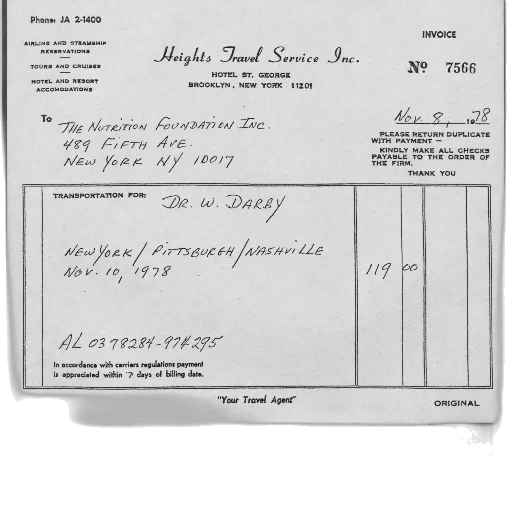 Phone: JA 2-1400
AIRLINE AND STEAMSHIP
RESERVATIONS
TOURS AND CRUISES
HOTEL AND RESORT
ACCOMODATIONS
Heights Travel Service Inc.
HOTEL ST. GEORGE
BROOKLYN, NEW YORK 11201
INVOICE
No 7566
To THE NUTRITION FOUNDATION INC.
489 FIFTH AVE.
NEW YORK NY 10017
Nov. 8, 1978
PLEASE RETURN DUPLICATE
WITH PAYMENT —
KINDLY MAKE ALL CHECKS
PAYABLE TO THE ORDER OF
THE FIRM.
THANK YOU
TRANSPORTATION FOR: DR. W. DARBY
NEW YORK / PITTSBURGH / NASHVILLE
NOV. 10, 1978 119 00
AL 0378284-974295
In accordance with carriers regulations payment
is appreciated within 7 days of billing date.
"Your Travel Agent"
ORIGINAL